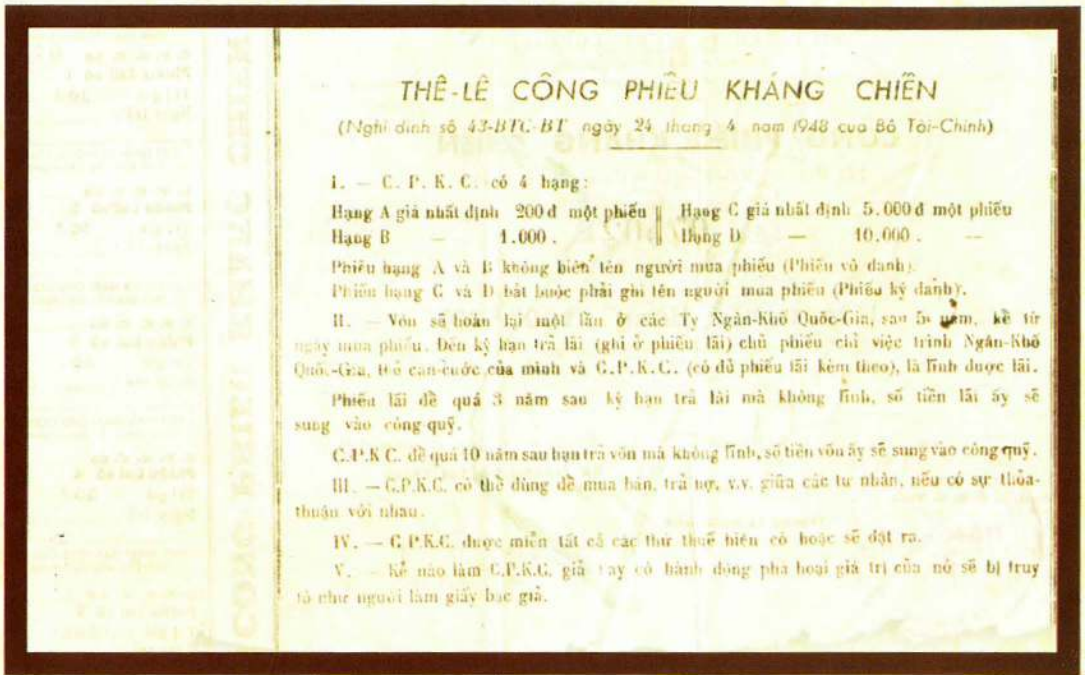 THÊ-LÊ CÔNG PHIẾU KHÁNG CHIẾN
(Nghị định số 43-BTC-BT ngày 24 tháng 4 năm 1948 của Bộ Tài-Chính)
I. — C. P. K. C. có 4 hạng:
Hạng A giá nhất định 200đ một phiếu || Hạng C giá nhất định 5.000đ một phiếu
Hạng B — 1.000. || Hạng D — 10.000. —
Phiếu hạng A và B không biên tên người mua phiếu (Phiếu vô danh).
Phiếu hạng C và D bắt buộc phải ghi tên người mua phiếu (Phiếu ký danh).
II. — Vốn sẽ hoàn lại một lần ở các Ty Ngân-Khố Quốc-Gia, sau 5 năm, kể từ
ngày mua phiếu. Đến kỳ hạn trả lãi (ghi ở phiếu lãi) chủ phiếu chỉ việc trình Ngân-Khố
Quốc-Gia, thẻ căn-cước của mình và C.P.K.C. (có đủ phiếu lãi kèm theo), là lĩnh được lãi.
Phiếu lãi để quá 3 năm sau kỳ hạn trả lãi mà không lĩnh, số tiền lãi ấy sẽ
sung vào công quỹ.
C.P.K.C. để quá 10 năm sau hạn trả vốn mà không lĩnh, số tiền vốn ấy sẽ sung vào công quỹ.
III. — C.P.K.C. có thể dùng để mua bán, trả nợ, v.v. giữa các tư nhân, nếu có sự thỏa-
thuận với nhau.
IV. — C.P.K.C. được miễn tất cả các thứ thuế hiện có hoặc sẽ đặt ra.
V. — Kẻ nào làm C.P.K.C. giả hay có hành động phá hoại giá trị của nó sẽ bị truy
tố như người làm giấy bạc giả.